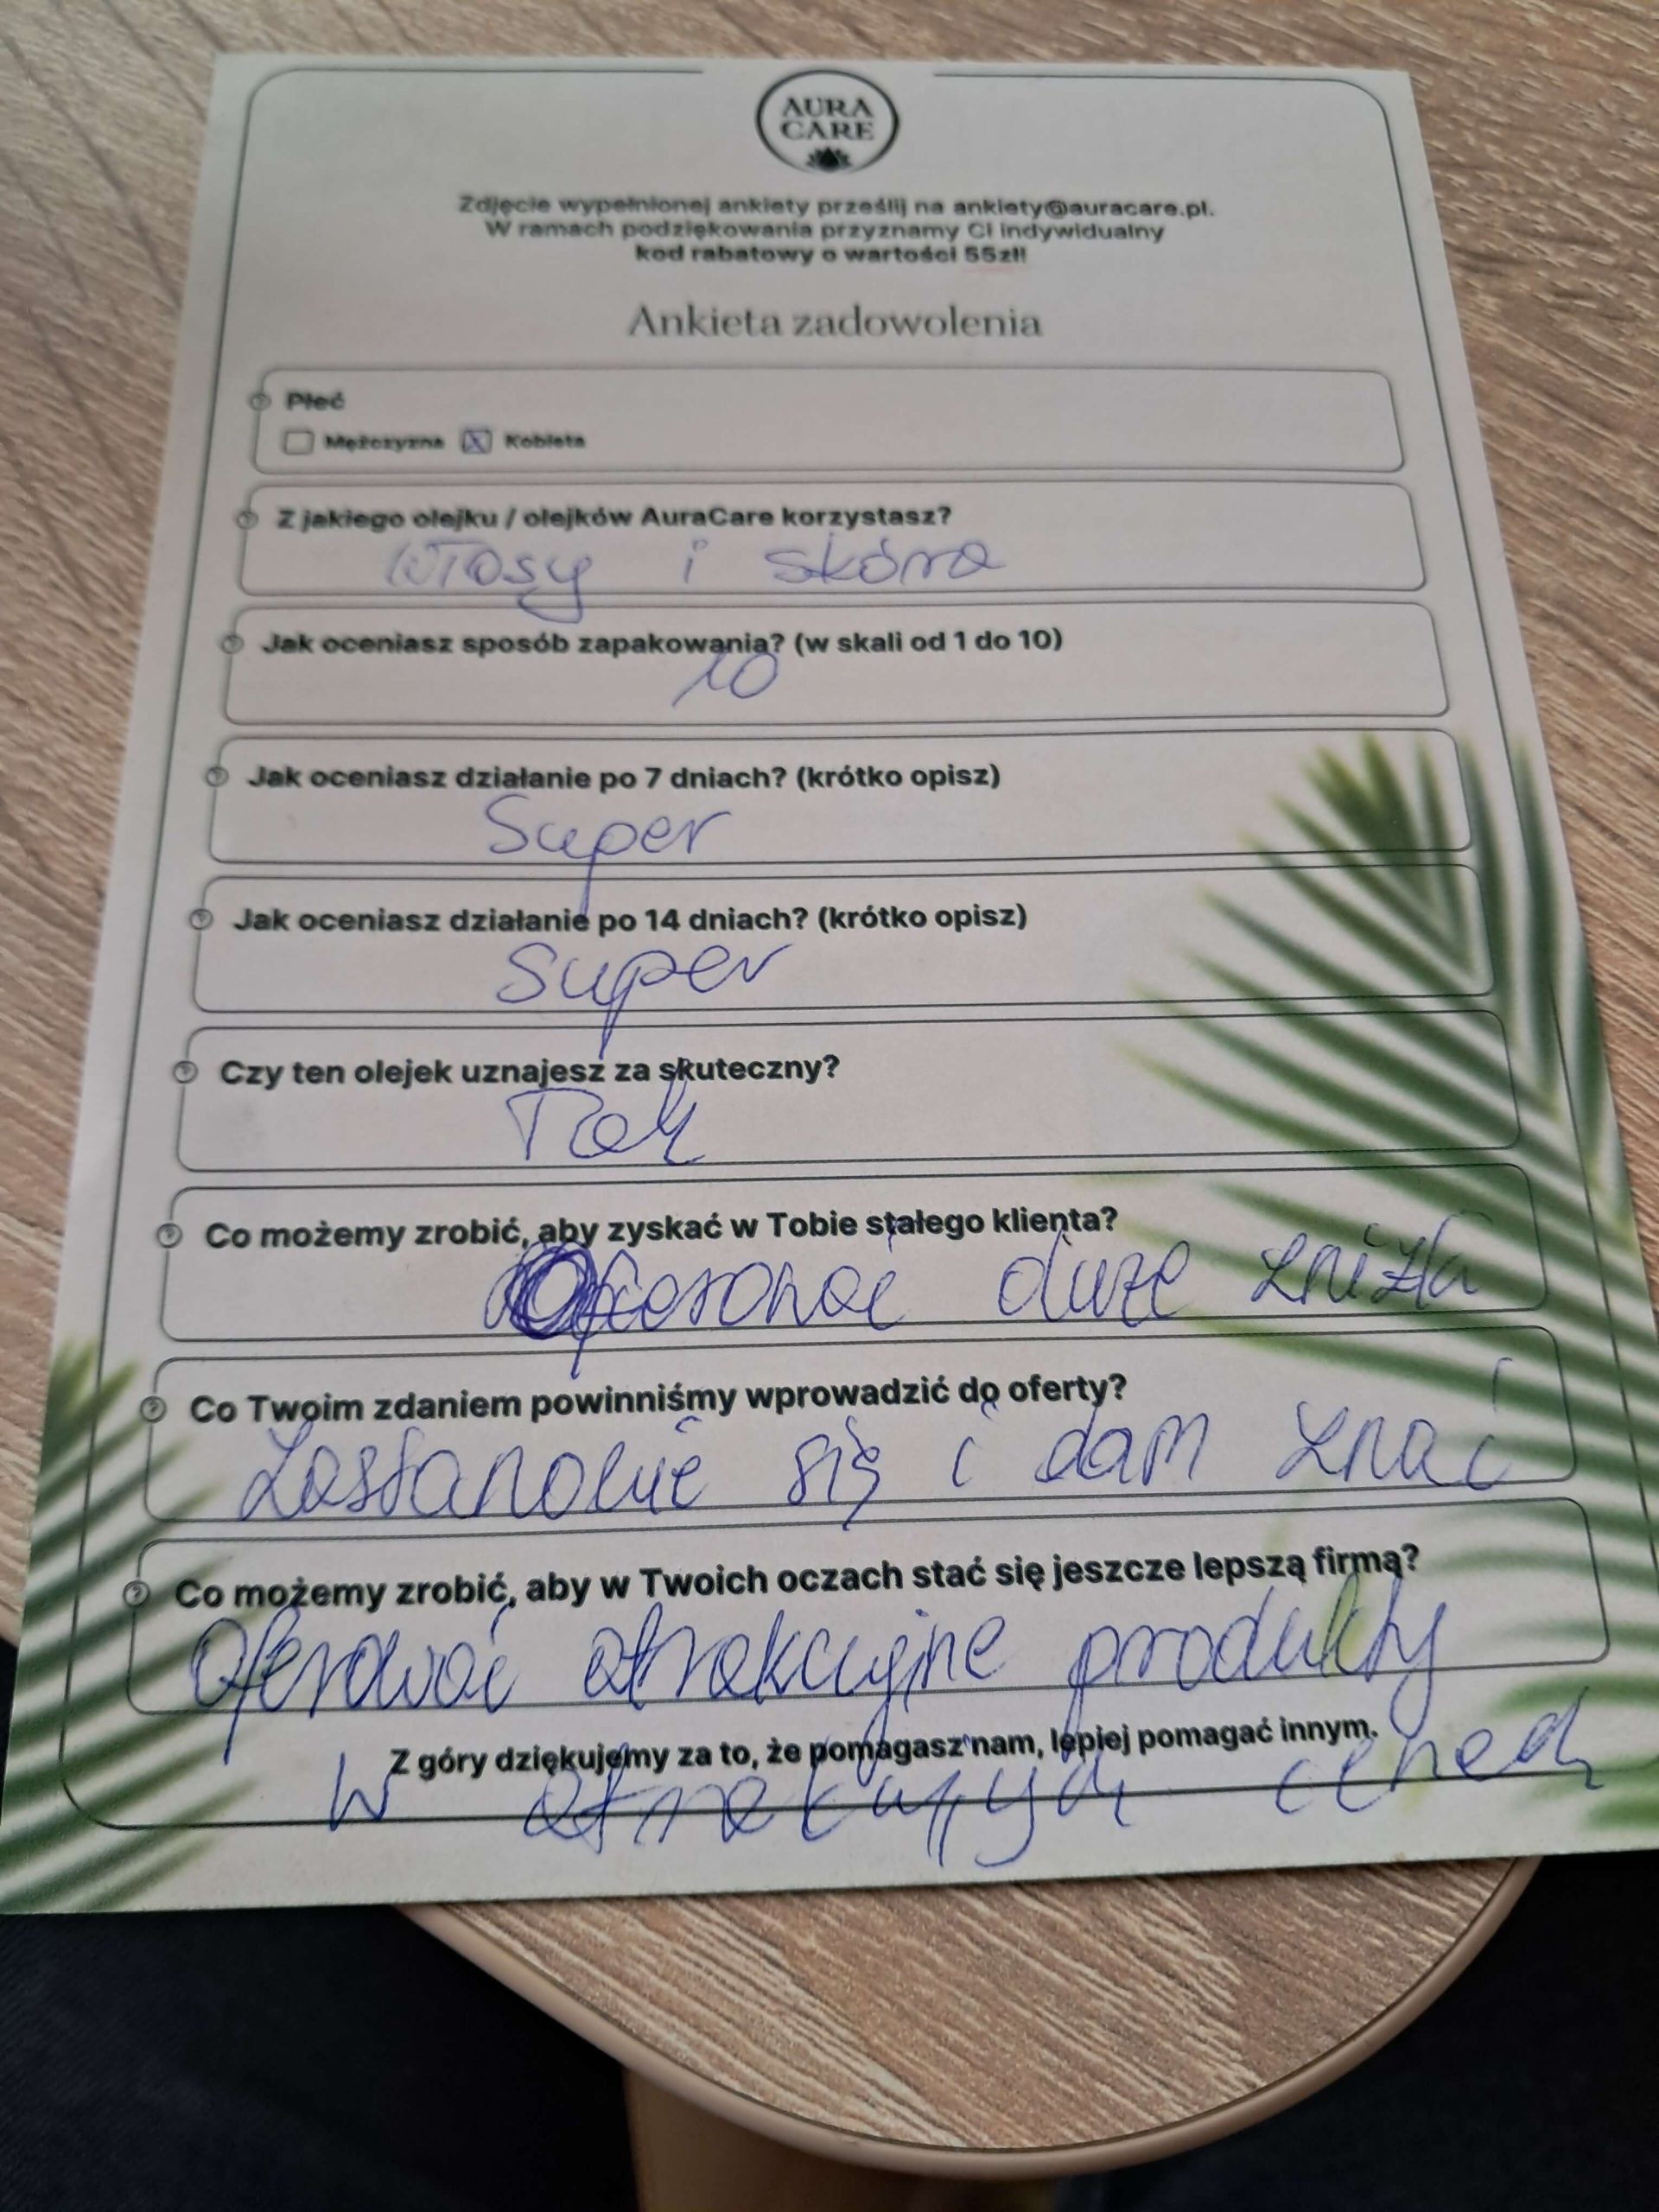 AURA
CARE
Zdjęcie wypełnionej ankiety prześlij na ankiety@auracare.pl.
W ramach podziękowania przyznamy Ci indywidualny
kod rabatowy o wartości 55zł!
Ankieta zadowolenia
Płeć
Mężczyzna X Kobieta
Z jakiego olejku / olejków AuraCare korzystasz?
Włosy i skóra
Jak oceniasz sposób zapakowania? (w skali od 1 do 10)
10
Jak oceniasz działanie po 7 dniach? (krótko opisz)
Super
Jak oceniasz działanie po 14 dniach? (krótko opisz)
Super
Czy ten olejek uznajesz za skuteczny?
Tak
Co możemy zrobić, aby zyskać w Tobie stałego klienta?
duże zniżki
Co Twoim zdaniem powinniśmy wprowadzić do oferty?
Zastanowię się i dam znać
Co możemy zrobić, aby w Twoich oczach stać się jeszcze lepszą firmą?
Oferować atrakcyjne produkty
Z góry dziękujemy za to, że pomagasz nam, lepiej pomagać innym.
W atrakcyjnych cenach